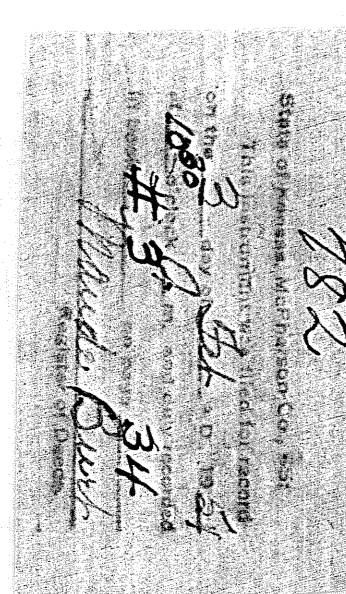 782
State of Kansas, McPherson Co., ss:
This instrument was filed for record
on the 3 day of Feb A.D. 195
at 10:30 o'clock M., and duly recorded
in # 3 on page 34
Maude Burt
Register of Deeds.